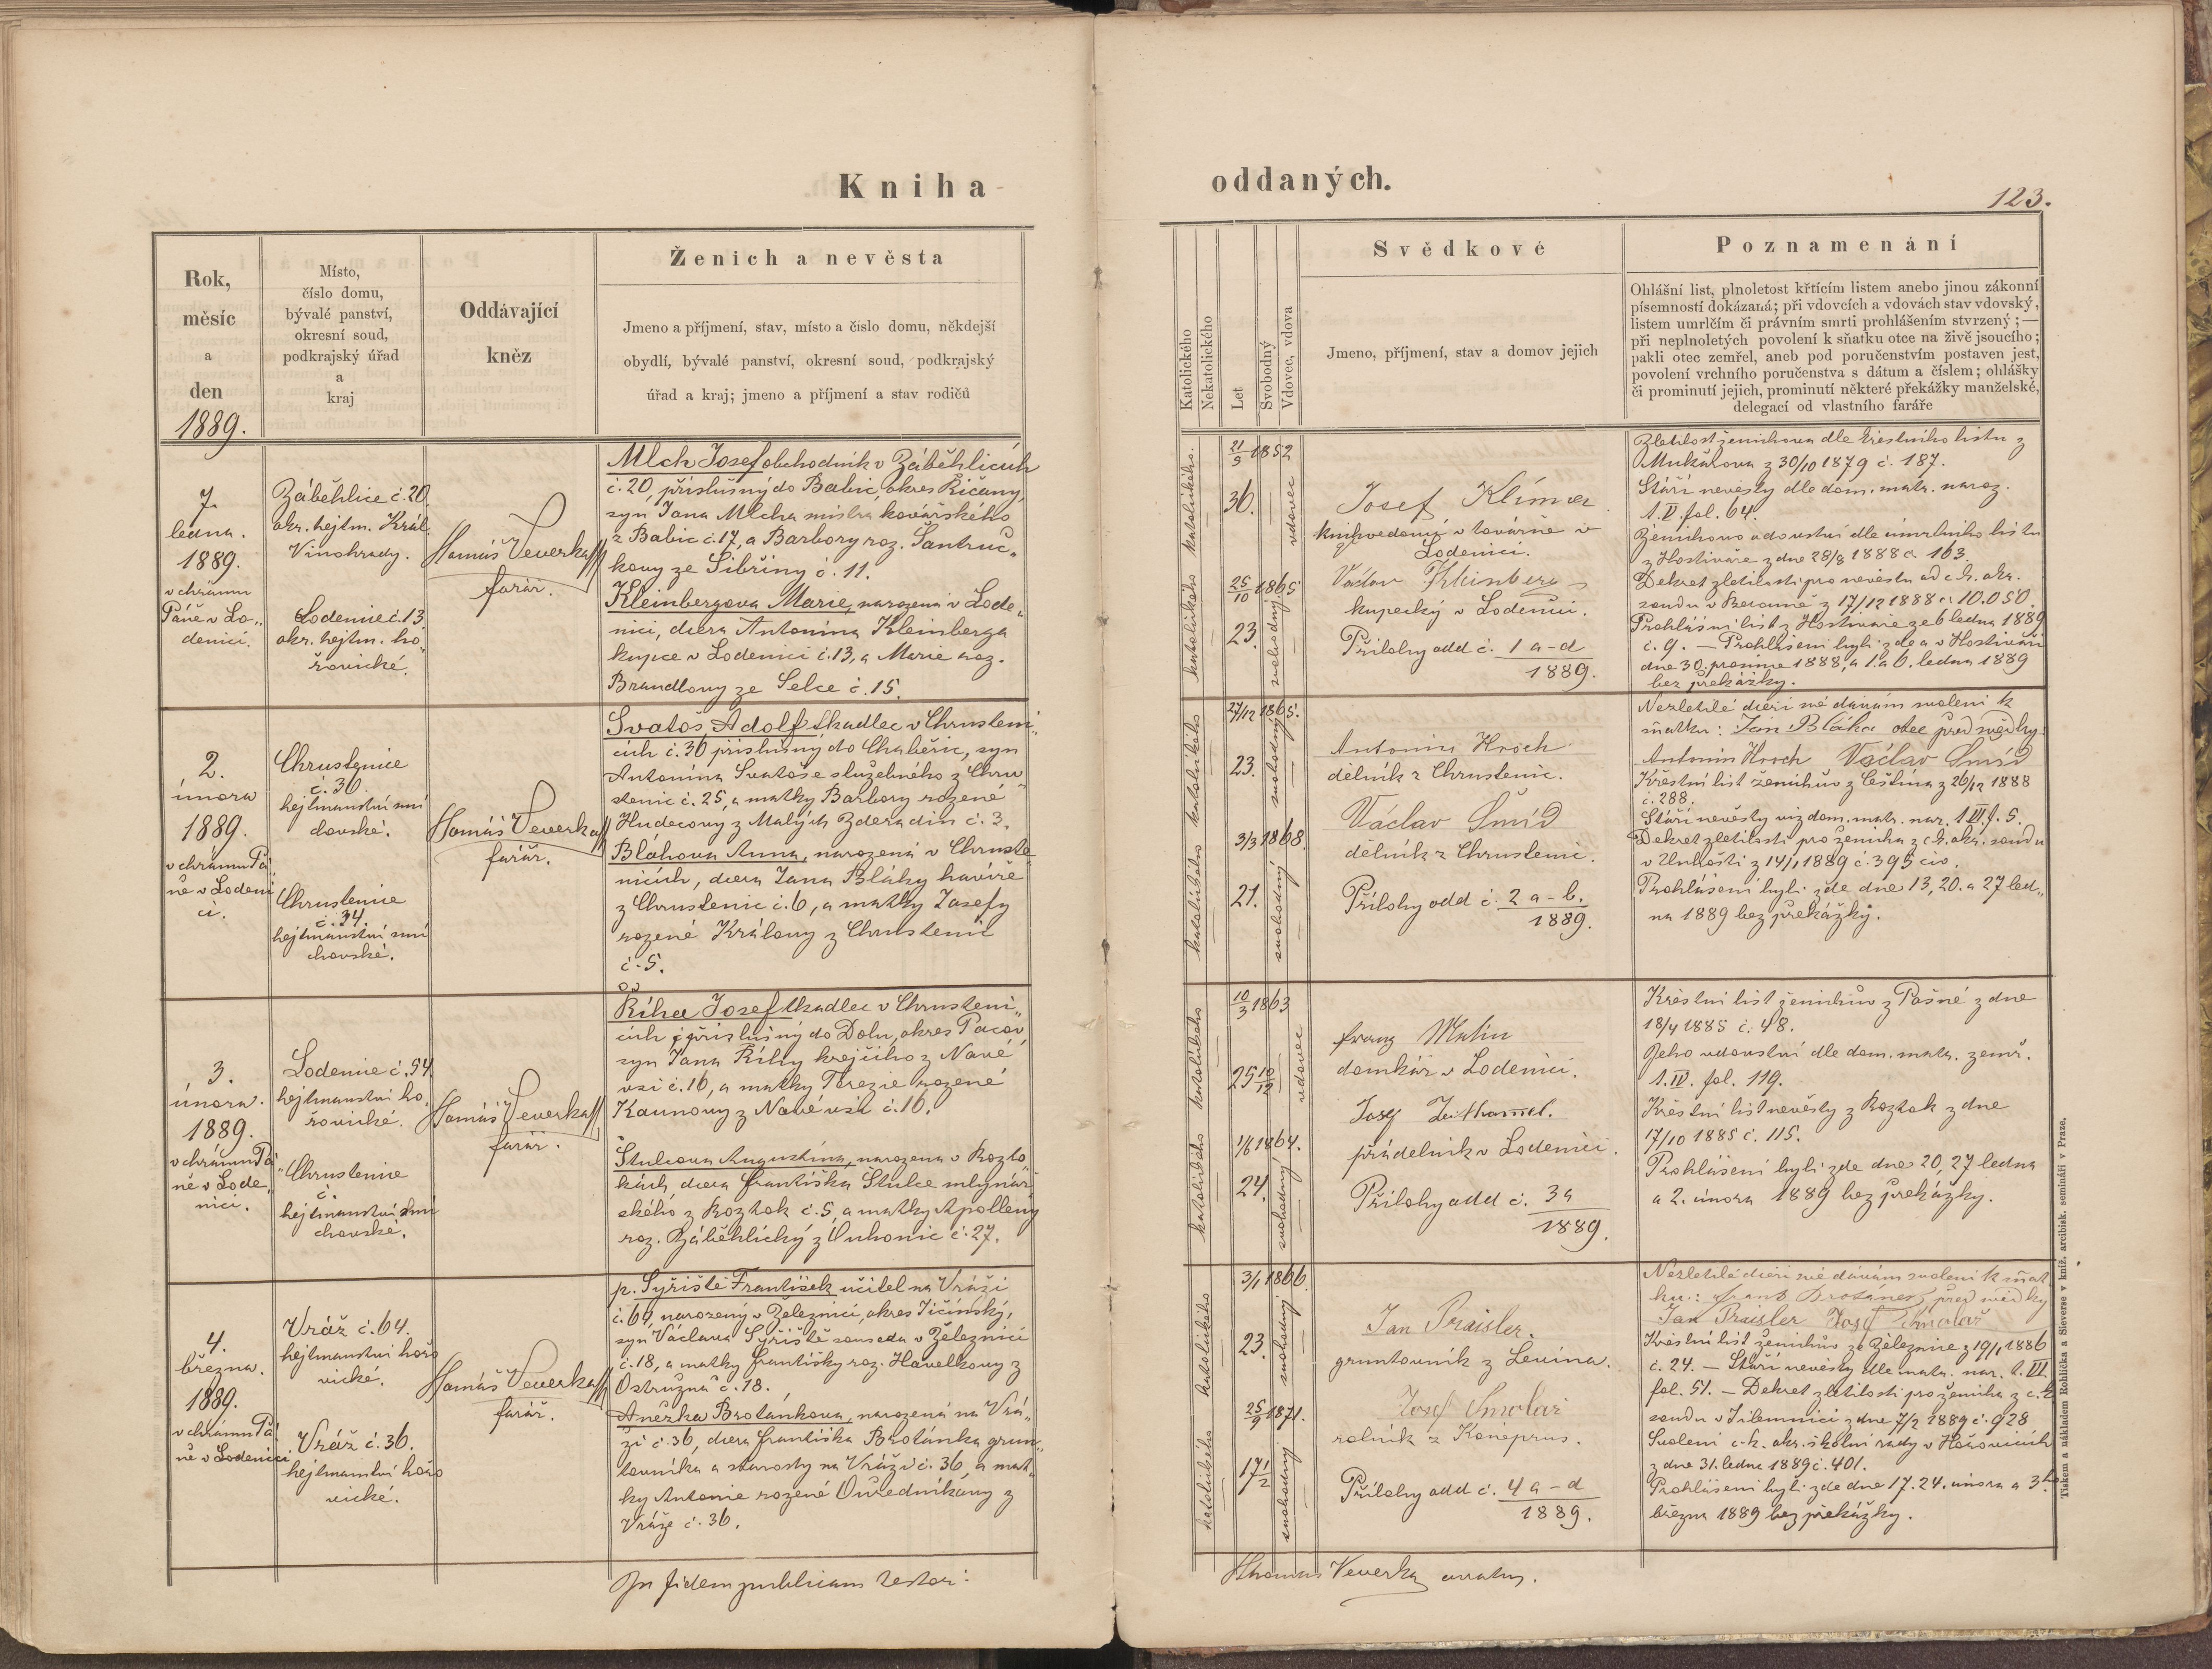 Kniha
oddaných.
123.
Rok,
měsíc
a
den
1889.
Místo,
číslo domu,
bývalé panství,
okresní soud,
podkrajský úřad
a
kraj
Oddávající
kněz
Ženich a nevěsta
Jmeno a příjmení, stav, místo a číslo domu, někdejší
obydlí, bývalé panství, okresní soud, podkrajský
úřad a kraj; jmeno a příjmení a stav rodičů
Katolického
Nekatolického
Let
Svobodný
Vdovec, vdova
Svědkové
Jmeno, příjmení, stav a domov jejich
Poznamenání
Ohlášní list, plnoletost křtícím listem anebo jinou zákonní
písemností dokázaná; při vdovcích a vdovách stav vdovský,
listem umrlčím či právním smrti prohlášením stvrzený; —
při neplnoletých povolení k sňatku otce na živě jsoucího;
pakli otec zemřel, aneb pod poručenstvím postaven jest,
povolení vrchního poručenstva s dátum a číslem; ohlášky
či prominutí jejich, prominutí některé překážky manželské,
delegací od vlastního faráře
7.
ledna.
1889.
v chrámu
Páně v Lo-
denici.
Záběhlice č. 20
okr. hejtm. Král.
Vinohrady.
Lodenice č. 13
okr. hejtm. ho-
řovické.
Tomáš Veverka
farář.
Mlch Josef obchodník v Záběhlicích
č. 20, příslušný do Babic, okres Říčany,
syn Jana Mlcha mistra kovářského
z Babic č. 17, a Barbory roz. Šantruč-
kovy ze Sibřiny č. 11.
Kleinbergova Marie, narozená v Lode-
nici, dcera Antonína Kleinberga
kupce v Lodenici č. 13, a Marie roz.
Brandlovy ze Selce č. 15.
katolického
katolického
21/9 1852
36.
vdovec
25/10 1865
23.
svobodný
Josef Klíma
knihvedoucí v továrně v
Lodenici.
Václav Kleinberg
kupecký v Lodenici.
Přílohy odd č. 1 a-d
1889.
Zletilost ženichova dle křestního listu z
Mukařova z 30/10 1879 č. 187.
Stáří nevěsty dle dom. matr. naroz.
t. V. fol. 64.
Ženichovo vdovství dle úmrtního listu
z Hostivaře z dne 28/8 1888 č. 163.
Dekret zletilosti pro nevěstu od c. k. okr.
soudu v Berouně z 17/12 1888 č. 10.050.
Prohlášní list z Hostivaře ze 6 ledna 1889
č. 9. — Prohlášeni byli zde a v Hostivaři
dne 30. prosince 1888, a 1. a 6. ledna 1889
bez překážky.
2.
února
1889.
v chrámu Pá-
ně v Lodeni-
ci.
Chrustenice
č. 36.
hejtmanství smí-
chovské.
Chrustenice
č. 34.
hejtmanství smí-
chovské.
Tomáš Veverka
farář.
Svatoš Adolf, tkadlec v Chrusteni-
cích č. 36 příslušný do Chaběřic, syn
Antonína Svatoše služebného z Chru-
stenic č. 25, a matky Barbory rozené
Hudecovy z Malých Zderadin č. 3.
Bláhova Anna, narozená v Chruste-
nicích, dcera Jana Bláhy havíře
z Chrustenic č. 6, a matky Josefy
rozené Královy z Chrustenic
č. 5.
katolického
katolického
27/12 1865.
23.
svobodný
3/3 1868.
21.
svobodný
Antonin Hroch
dělník z Chrustenic.
Václav Šmíd
dělník z Chrustenic.
Přílohy odd č. 2 a-b.
1889.
Nezletilé dceři mé dávám svolení k
sňatku: Jan Bláha otec před svědky:
Antonin Hroch Václav Šmíd
Křestní list ženichův z Čestína z 26/12 1888
č. 288.
Stáří nevěsty viz dom. matr. nar. t. VI. f. 5.
Dekret zletilosti pro ženicha z c. k. okr. soudu
v Unhošti z 14/1 1889 č. 395 civ.
Prohlášeni byli zde dne 13, 20. a 27 led-
na 1889 bez překážky.
3.
února.
1889.
v chrámu Pá-
ně v Lode-
nici.
Lodenice č. 54
hejtmanství ho-
řovické.
Chrustenice
č.
hejtmanství smí-
chovské.
Tomáš Veverka
farář.
Říha Josef tkadlec v Chrusteni-
cích, příslušný do Dolu, okres Pacov,
syn Jana Říhy krejčího z Nové
vsi č. 16, a matky Terezie rozené
Kaunovy z Nové vsi č. 16.
Štulcova Augustina, narozena v Rozto-
kách, dcera Františka Štulce mlynář-
ského z Roztok č. 5, a matky Apolleny
roz. Záběhlický z Ouhonic č. 27.
katolického
katolického
10/3 1863
25 10/12
vdovec
1/6 1864.
24.
svobodný
Franz Malin
domkář v Lodenici.
Josef
přádelník v Lodenici.
Přílohy odd č. 3a
1889.
Křestní list ženichův z Pošné z dne
18/4 1885 č. 48.
Jeho vdovství dle dom. matr. zemř.
t. IV. fol. 119.
Křestní list nevěsty z Roztok z dne
17/10 1885 č. 115.
Prohlášeni byli zde dne 20, 27 ledna
a 2. února 1889 bez překážky.
4.
března.
1889.
v chrámu Pá-
ně v Lodenici
Vráž č. 64.
hejtmanství hořo-
vické.
Vráž č. 36.
hejtmanství hořo-
vické.
Tomáš Veverka
farář.
p. Syřiště František učitel na Vráži
č. 64, narozený v Železnici, okres Jičínský,
syn Václava Syřiště souseda v Železnici
č. 18, a matky Františky roz. Havelkovy z
Ostružna č. 18.
Anežka Brotánkova, narozená na Vrá-
ži č. 36, dcera Františka Brotánka grun-
tovníka a starosty na Vráži č. 36, a mat-
ky Antonie rozené Ouředníkovy z
Vráže č. 36.
katolického
katolického
3/1 1866.
23.
svobodný
25/9 1871.
17 1/2
svobodný
Jan Praisler.
gruntovník z Levína.
Josef Smolař
rolník z Koněprus.
Přílohy odd č. 4 a-d
1889.
Nezletilé dceři své dávám svolení k sňat-
ku: Frant Brotánek před svědky
Jan Praisler Josef Smolař
Křestní list ženichův ze Železnice z 19/1 1886
č. 24. — Stáří nevěsty dle matr. nar. t. VI.
fol. 51. — Dekret zletilosti pro ženicha z c. k.
soudu v Jilemnici z dne 7/2 1889 č. 928
Svolení c. k. okr. školní rady v Hořovicích
z dne 31. ledna 1889 č. 401.
Prohlášeni byli zde dne 17. 24. února a 3ho
března 1889 bez překážky.
In fidem publicam testor:
Thomas Veverka curatus.
Tiskem a nákladem Rohlíčka a Sieverse v kníž. arcibisk. semináři v Praze.